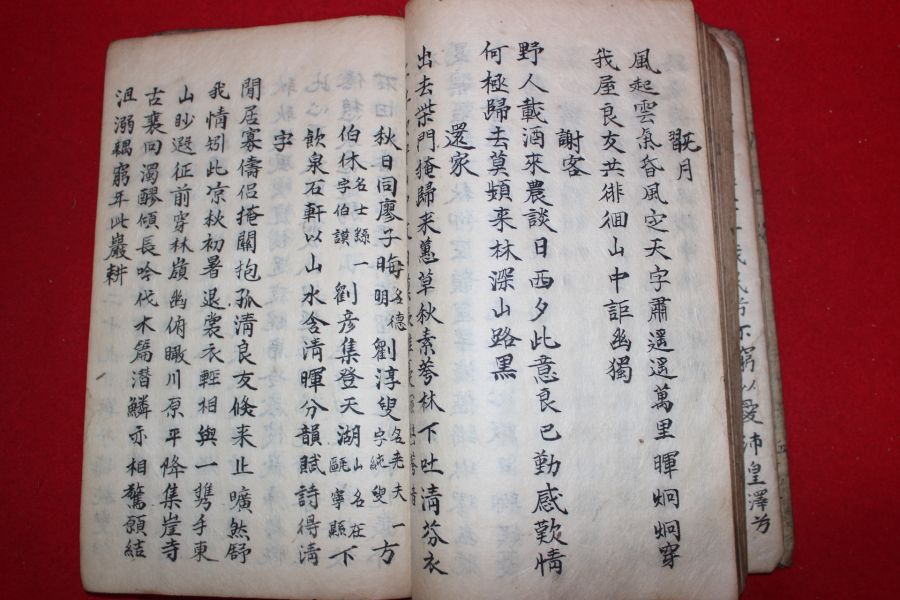 翫月
風起雲氣昏風定天字肅遥遥萬里暉炯炯穿
我屋良友共徘徊山中詎幽獨
謝客
野人載酒來農談日西夕此意良已勤感歎情
何極歸去莫頻来林深山路黑
還家
出去柴門掩歸来蕙草秋素萼林下吐清芬衣
秋日同廖子晦名德明劉淳叟名尭夫字純叟一方
伯休名士繇字伯謨一劉彦集登天湖山名在甌寧縣下
飲泉石軒以山水含清暉分韻賦詩得清
字
閒居寡儔侣掩關抱孤清良友倐来止曠然舒
我情矧此凉秋初暑退裳衣輕相與一携手東
山眇遐征前穿林嶺幽俯瞰川原平降集崖寺
古褰回濁醪傾長吟伐木篇潜鱗亦相驚願結
沮溺耦窮年此巖耕
民不窮以愛沛皇澤首